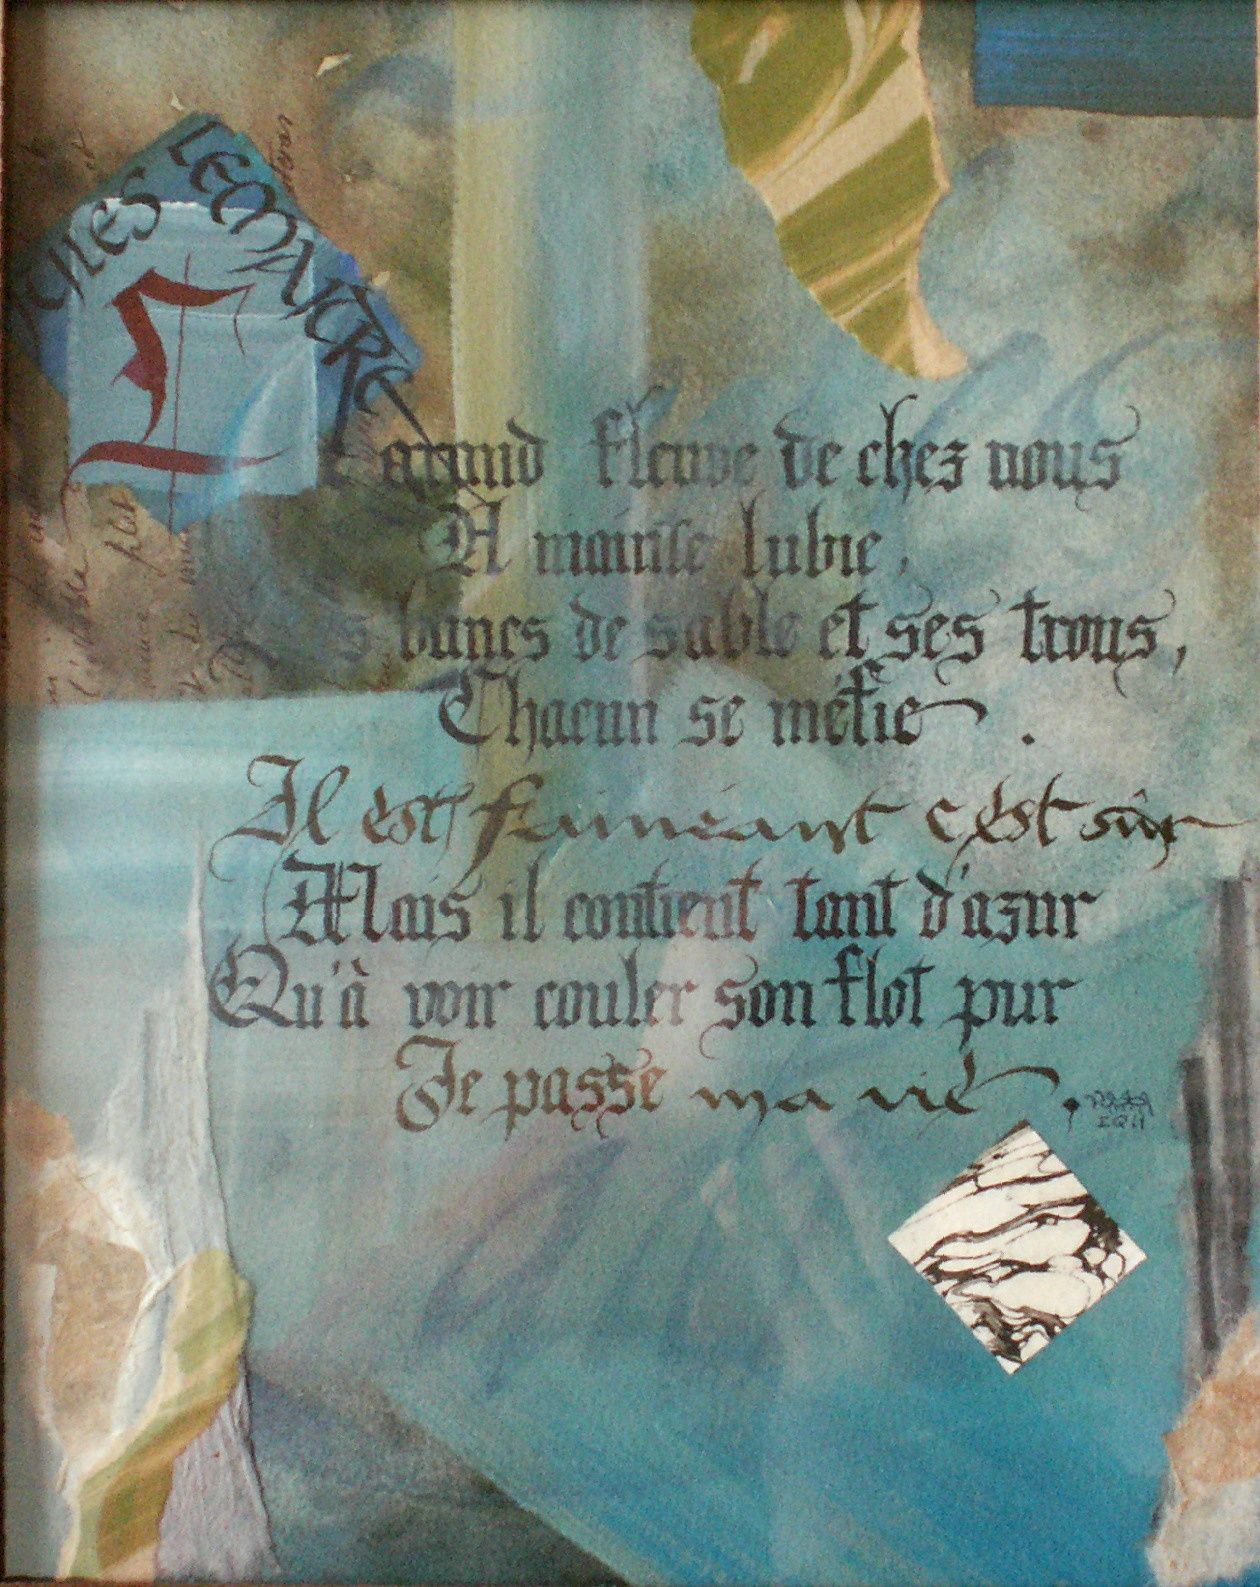 JULES LEMAITRE
Le grand fleuve de chez nous
A mainte lubie,
bancs de sable et ses trous,
Chacun se méfie.
Il est fainéant c'est sûr
Mais il contient tant d'azur
Qu'à voir couler son flot pur
Je passe ma vie.